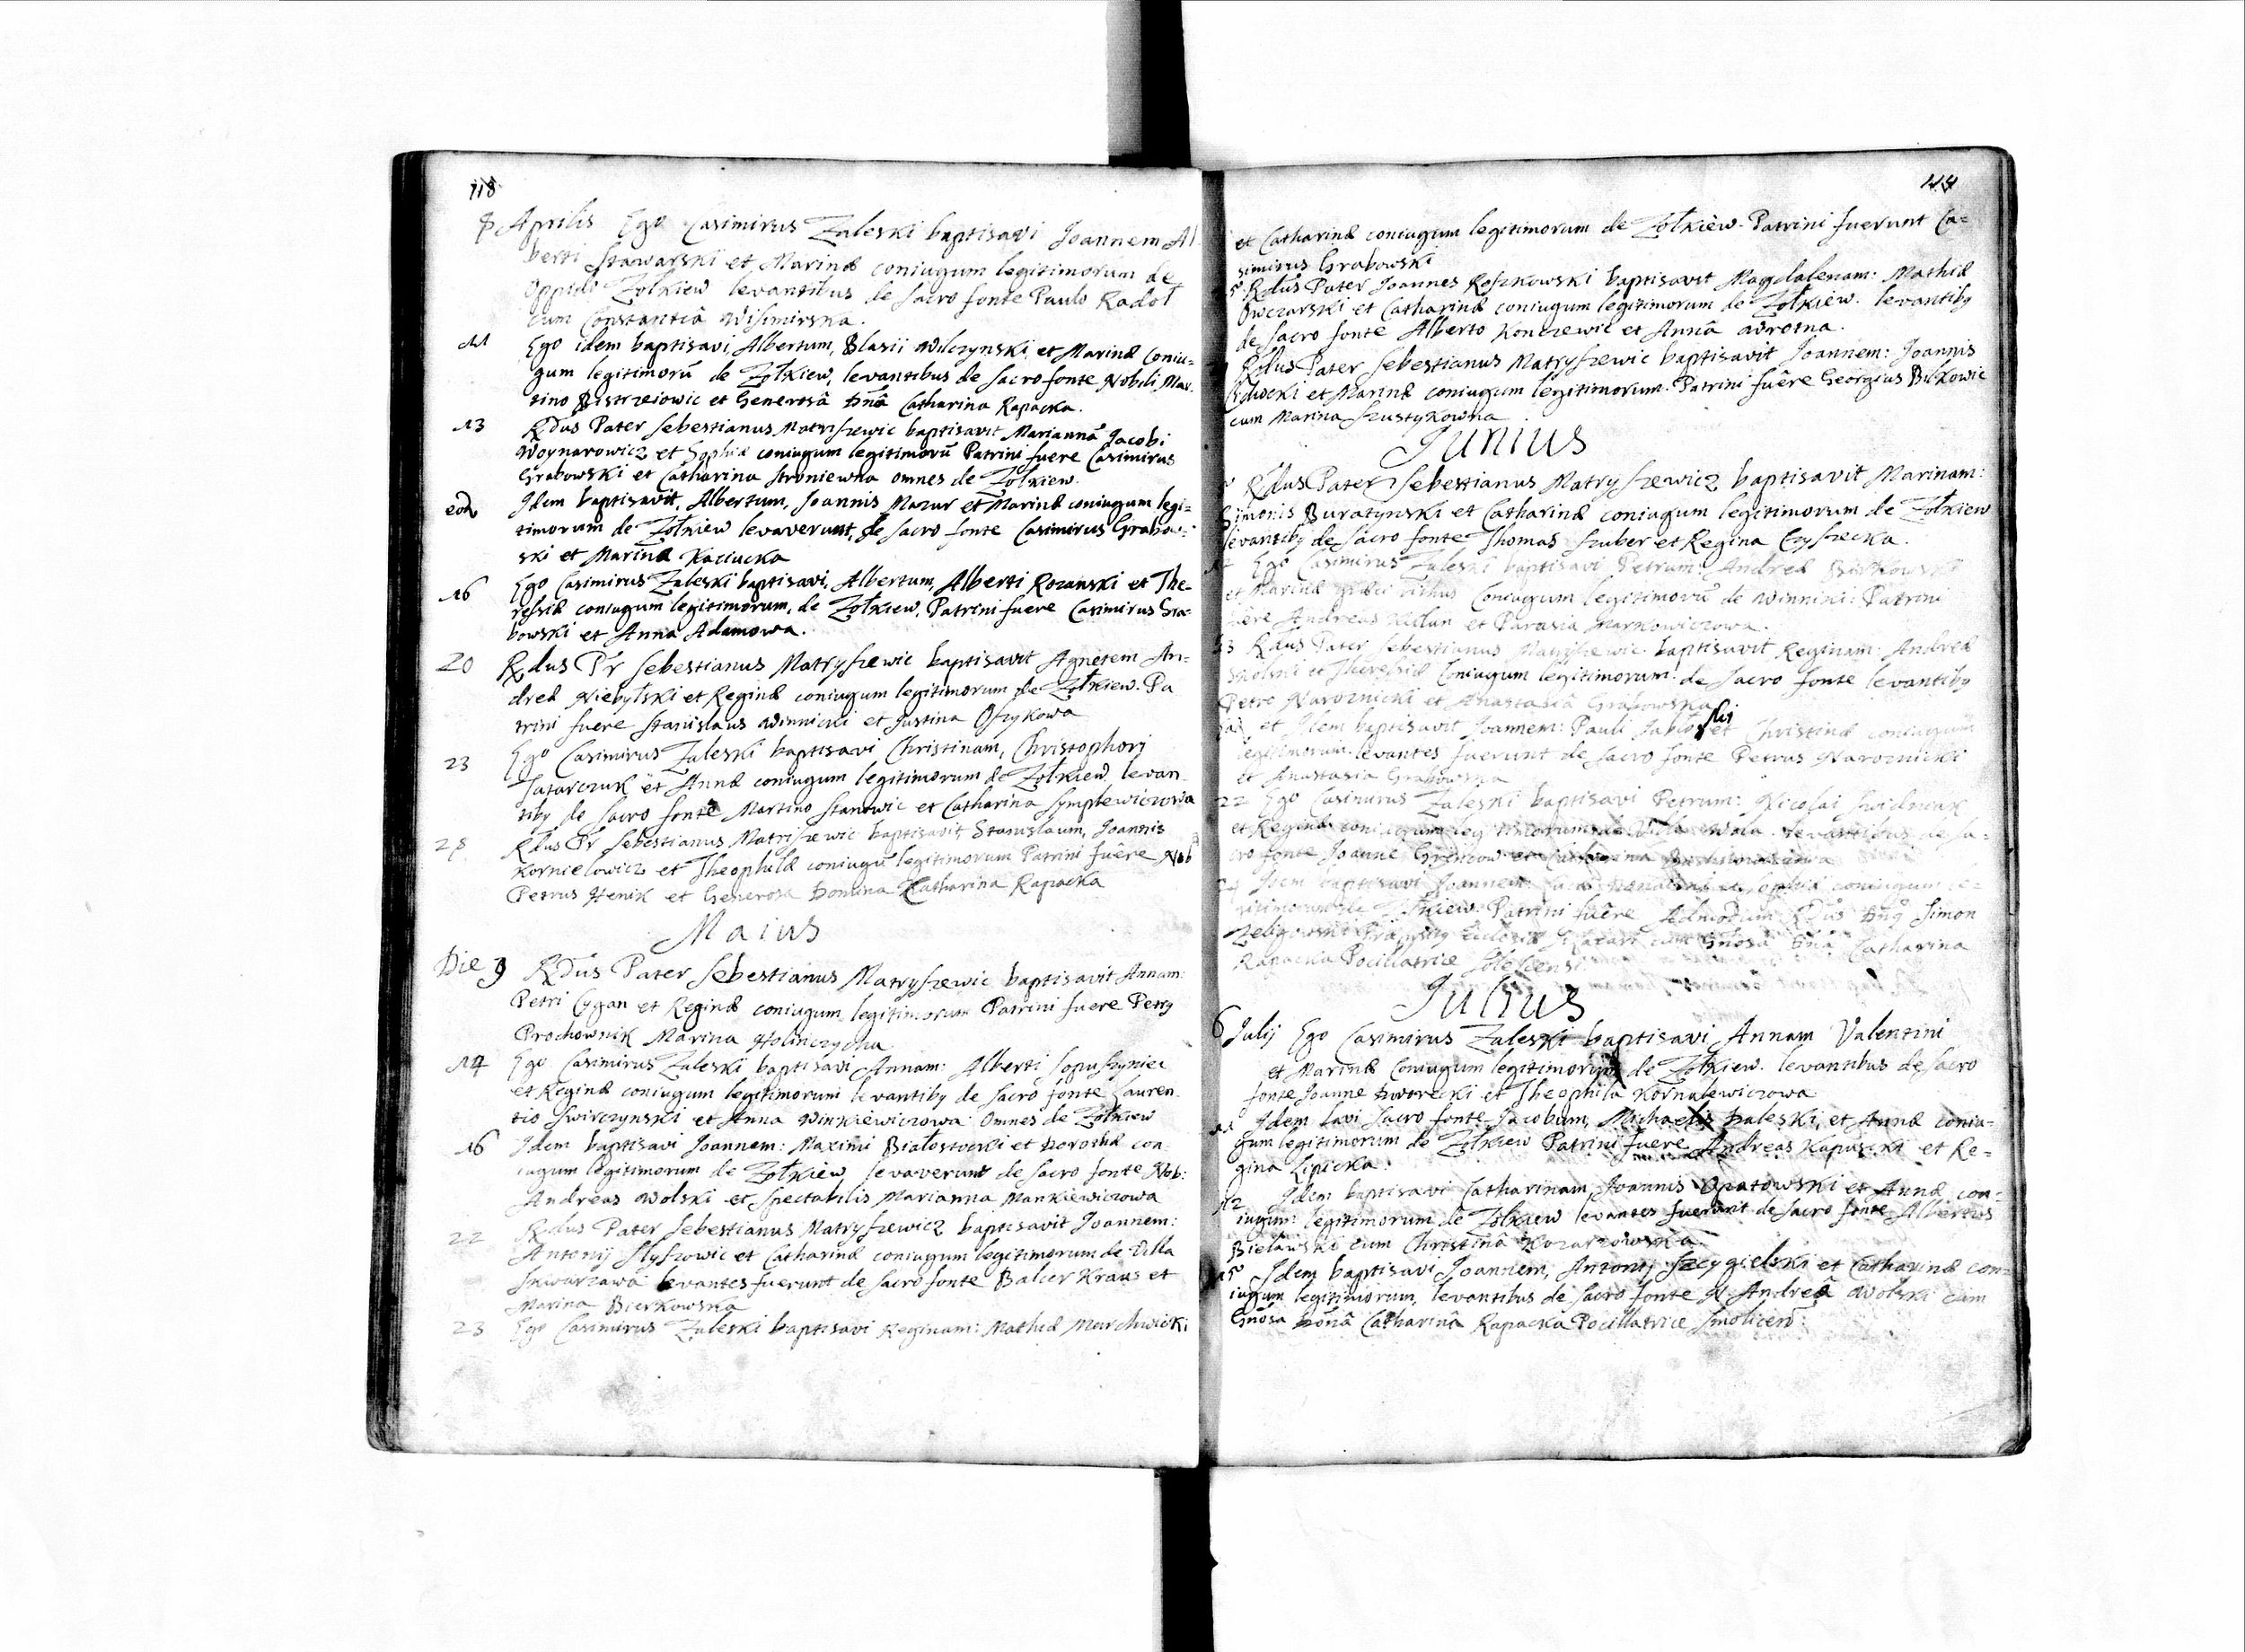 118
8 Aprilis Ego Casimirus Zaleski baptisavi Joannem Al
berti Stawarski et Marinæ coniugum legitimorum de
Oppido Zołkiew levantibus de sacro fonte Paulo Radoł
cum Constantiâ Wisimirska.
11 Ego idem baptisavi, Albertum, Blasii Wilczynski, et Marinæ Coniu-
gum legitimorũ de Zołkiew, levantibus de sacro fonte Nobili Mar-
tino Bistrzeiowic et Generosâ Dnâ Catharina Rapacka.
13 Rdus Pater Sebestianus Matriszewic baptisavit Mariannã Jacobi
Woynarowicz et Sophiæ coniugum legitimorũ Patrini fuere Casimirus
Grabowski et Catharina Stroniewna omnes de Zołkiew.
eod Idem baptisavit, Albertum, Joannis Mazur et Marinæ coniugum legi=
timorum de Zołkiew levaverunt, de sacro fonte Casimirus Grabow-
ski et Marina Kaciucka
16 Ego Casimirus Zaleski baptisavi, Albertum, Alberti Rozanski et The-
ressiæ coniugum legitimorum, de Zołkiew, Patrini fuere Casimirus Gra-
bowski et Anna Adamowa.
20 Rdus Pr Sebestianus Matryszewic baptisavit Agnetem An=
dreæ Niebylski et Reginæ coniugum legitimorum de Zołkiew. Pa
trini fuere Stanislaus Winnicki et Justina Oszykowa
23 Ego Casimirus Zaleski baptisavi Christinam, Christophori
Tatarczuk et Annæ coniugum legitimorum de Zołkiew, levan-
tiby de sacro fonte Martino Stanowic et Catharina Symplewiczowa
28 Rdus Pr Sebestianus Matriszewic baptisavit Stanislaum, Joannis
Kornielowicz et Theophilæ coniugũ legitimorum Patrini fuêre Nob
Petrus Henik et Generosa Domina Catharina Rapacka
Maius
Die 9 Rdus Pater Sebestianus Matryszewic baptisavit Annam:
Petri Cygan et Reginæ coniugum legitimorum Patrini fuere Petry
Prochownik Marina Holinczycha
14 Ego Casimirus Zaleski baptisavi Annam: Alberti Sopuszyniec
et Reginæ coniugum legitimorum levantiby de sacro fonte Lauren-
tio Swirczynski et Anna Winkiewiczowa Omnes de Zołkiew
16 Idem baptisavi Joannem: Maximi Białostocki et Dorotheæ con
iugum legitimorum de Zołkiew, levaverunt de sacro fonte Nob:
Andreas Wolski et Spectabilis Marianna Mankiewiczowa
22 Rdus Pater Sebestianus Matryszewicz baptisavit Joannem:
Antonij Slyszowic et Catharinæ coniugum legitimorum de Villa
Skwarzawa levantes fuerunt de sacro fonte Balcer Kraus et
Marina Bierkowska
23 Ego Casimirus Zaleski baptisavi Reginam: Mathiæ Marchwicki
et Catharinæ coniugum legitimorum de Zołkiew. Patrini fuerunt Ca=
simirus Grabowski
Rdus Pater Joannes Roszkowski baptisavit Magdalenam: Mathiæ
Owczarski et Catharinæ coniugum legitimorum de Zołkiew. levantiby
de sacro fonte Alberto Konczewic et Annâ Wrotna.
Rdus Pater Sebestianus Matryszewic baptisavit Joannem: Joannis
et Marinæ coniugum legitimorum. Patrini fuêre Georgius Bilkowic
cum Marina Szustykowna
Junius
Rdus Pater Sebestianus Matryszewicz baptisavit Marinam:
Simonis Buratynski et Catharinæ coniugum legitimorum de Zołkiew
levantiby de sacro fonte Thomas Szuber et Regina Czyszecka.
Ego Casimirus Zaleski baptisavi Petrum: Andreæ Birkowski
et Marinæ ritus Coniugum legitimorũ de Winniki: Patrini
fuere Andreas et Parasia Markowiczowa.
13 Rdus Pater Sebestianus Matryszewic baptisavit Reginam: Andreæ
Wolski et Theressiæ Coniugum legitimorum: de sacro fonte levantiby
Petro Naroznicki et Anastasiâ Grabowska
et Idem baptisavit Joannem: Pauli Jablonski et Christinæ coniugum
legitimorum. levantes fuerunt de sacro fonte Petrus Naroznicki
et Anastasia Grabowska
22 Ego Casimirus Zaleski baptisavi Petrum: Nicolai Swidniak
et Reginæ coniugum legitimorum de Villa Wola. levantibus de sa-
cro fonte Joanne et Catharina
24 Idem baptisavi Joannem: et Sophiæ coniugum le=
gitimorum de Zołkiew. Patrini fuêre Admodum Rdus Dnus Simon
Zeligowski cum Gnosa Dna Catharina
Rapacka Pocillatrice
Julius
6 Julij Ego Casimirus Zaleski baptisavi Annam Valentini
et Marinæ Coniugum legitimorum de Zołkiew. levantibus de sacro
fonte Joanne Dworecki et Theophila Kornalewiczowa
11 Idem lavi sacro fonte Jacobum, Michaelis Daleski, et Annæ coniu-
gum legitimorum de Zołkiew Patrini fuere Andreas Kapuscki et Re=
gina Lipicka.
12 Idem baptisavi Catharinam, Joannis Opatowski et Annæ con-
iugum legitimorum de Zołkiew levantes fuerunt de sacro fonte Albertus
Bielawski cum Christinâ Kozarzowska
15 Idem baptisavi Joannem, Antonij Szczygielski et Catharinæ con=
iugum legitimorum, levantibus de sacro fonte N. Andreâ Wolski cum
Gnosa Donâ Catharinâ Rapacka Pocillatrice Smolicen: